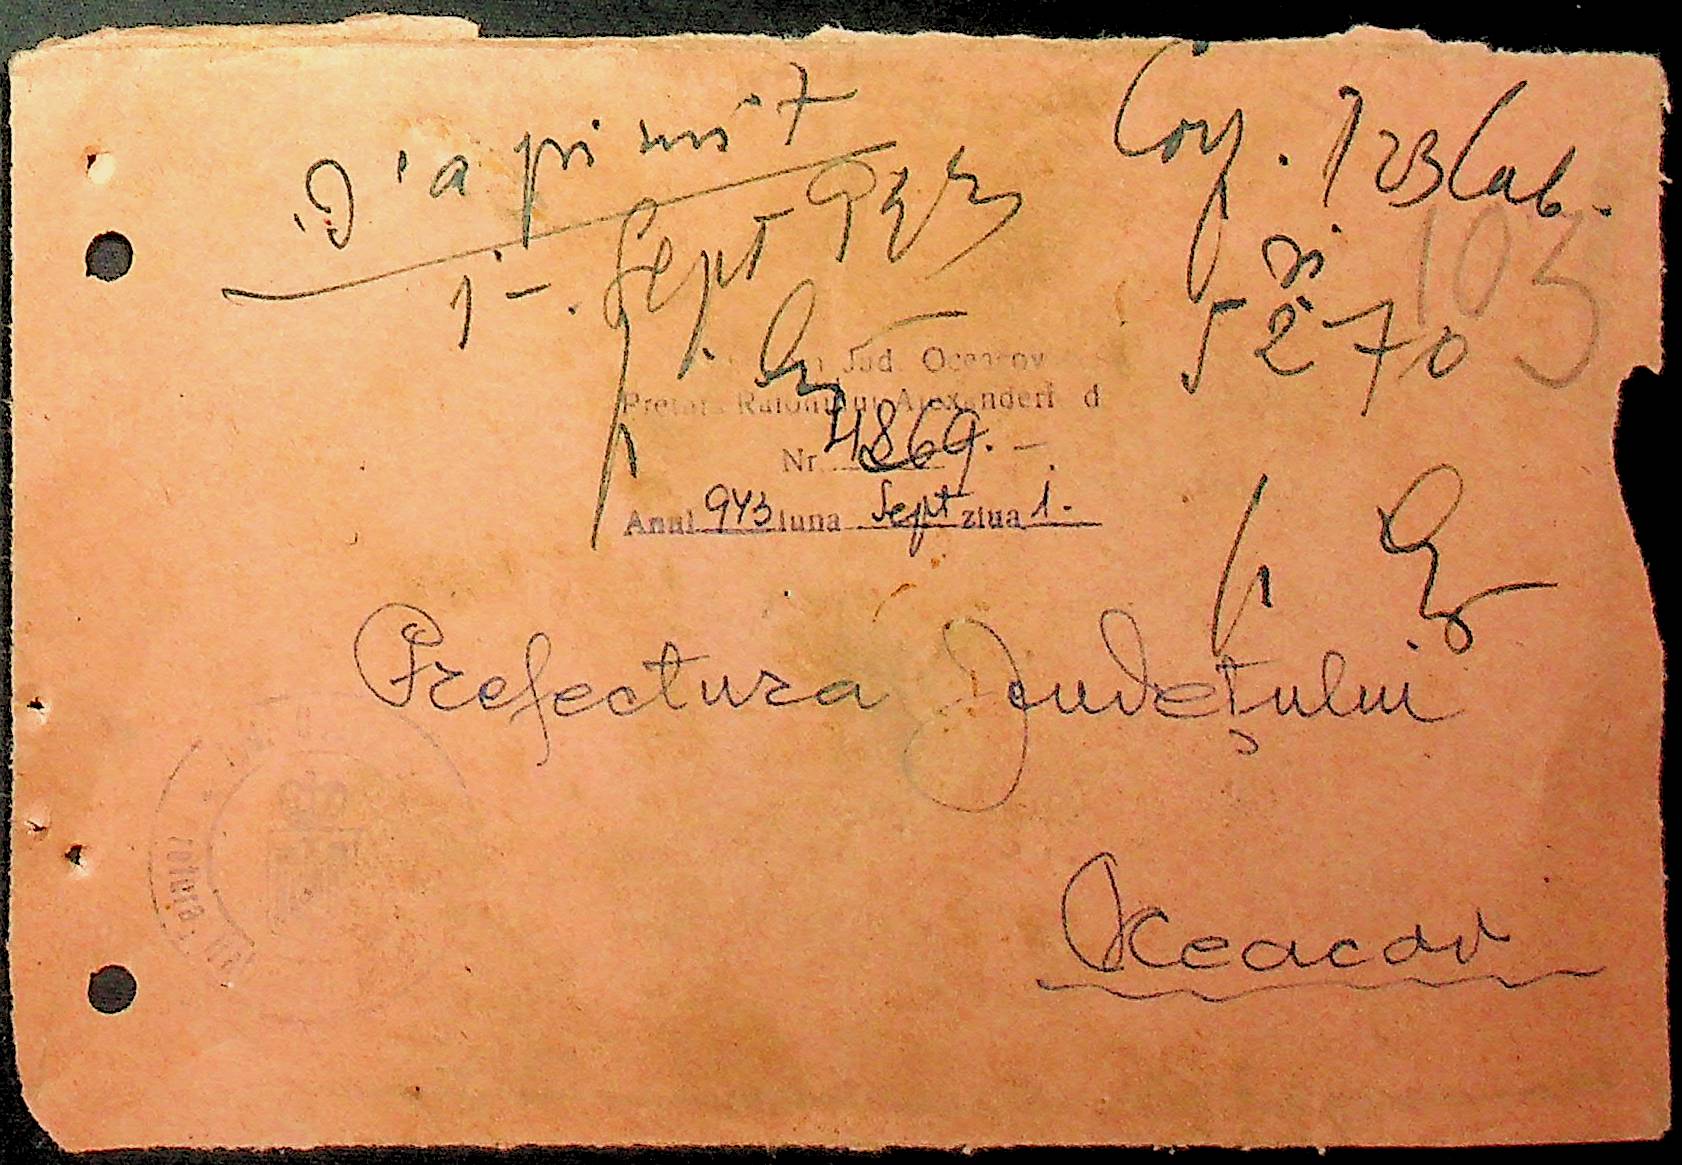 S'a primit
1 - Sept 943
Conf. 123 Cab.
si
5270
103
Jud. Oceacov
Pretura Raionului Alexanderfeld
Nr. 4869. -
Anul 943 luna Sept ziua 1. -
Prefectura Județului
Oceacov